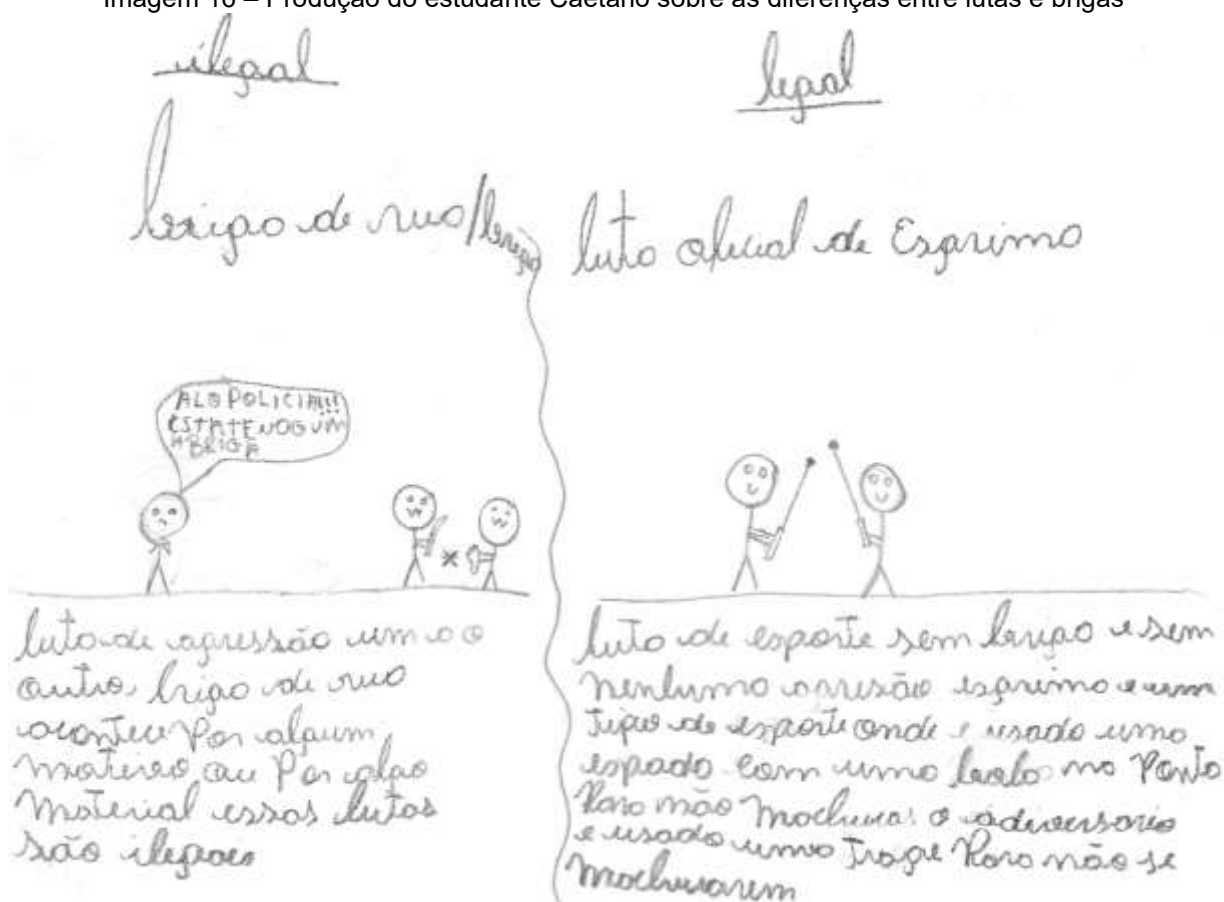 Imagem 16 – Produção do estudante Caetano sobre as diferenças entre lutas e brigas
ilegal
briga de rua/briga
ALO POLICIA!!!
ESTATENOGUM
ABRIGA
luta de agressão um a o
outro, briga de rua
acontece Por algum
motivo ou Por algo
Material essas lutas
são ilegaes
legal
luta oficial de Esgrima
luta de esporte sem briga e sem
nenhuma agresão esgrima e um
tipo de esporte onde e usado uma
espada com uma bola na Ponta
Para não Machucar o adversario
e usado uma Trage Para não se
Machucarem